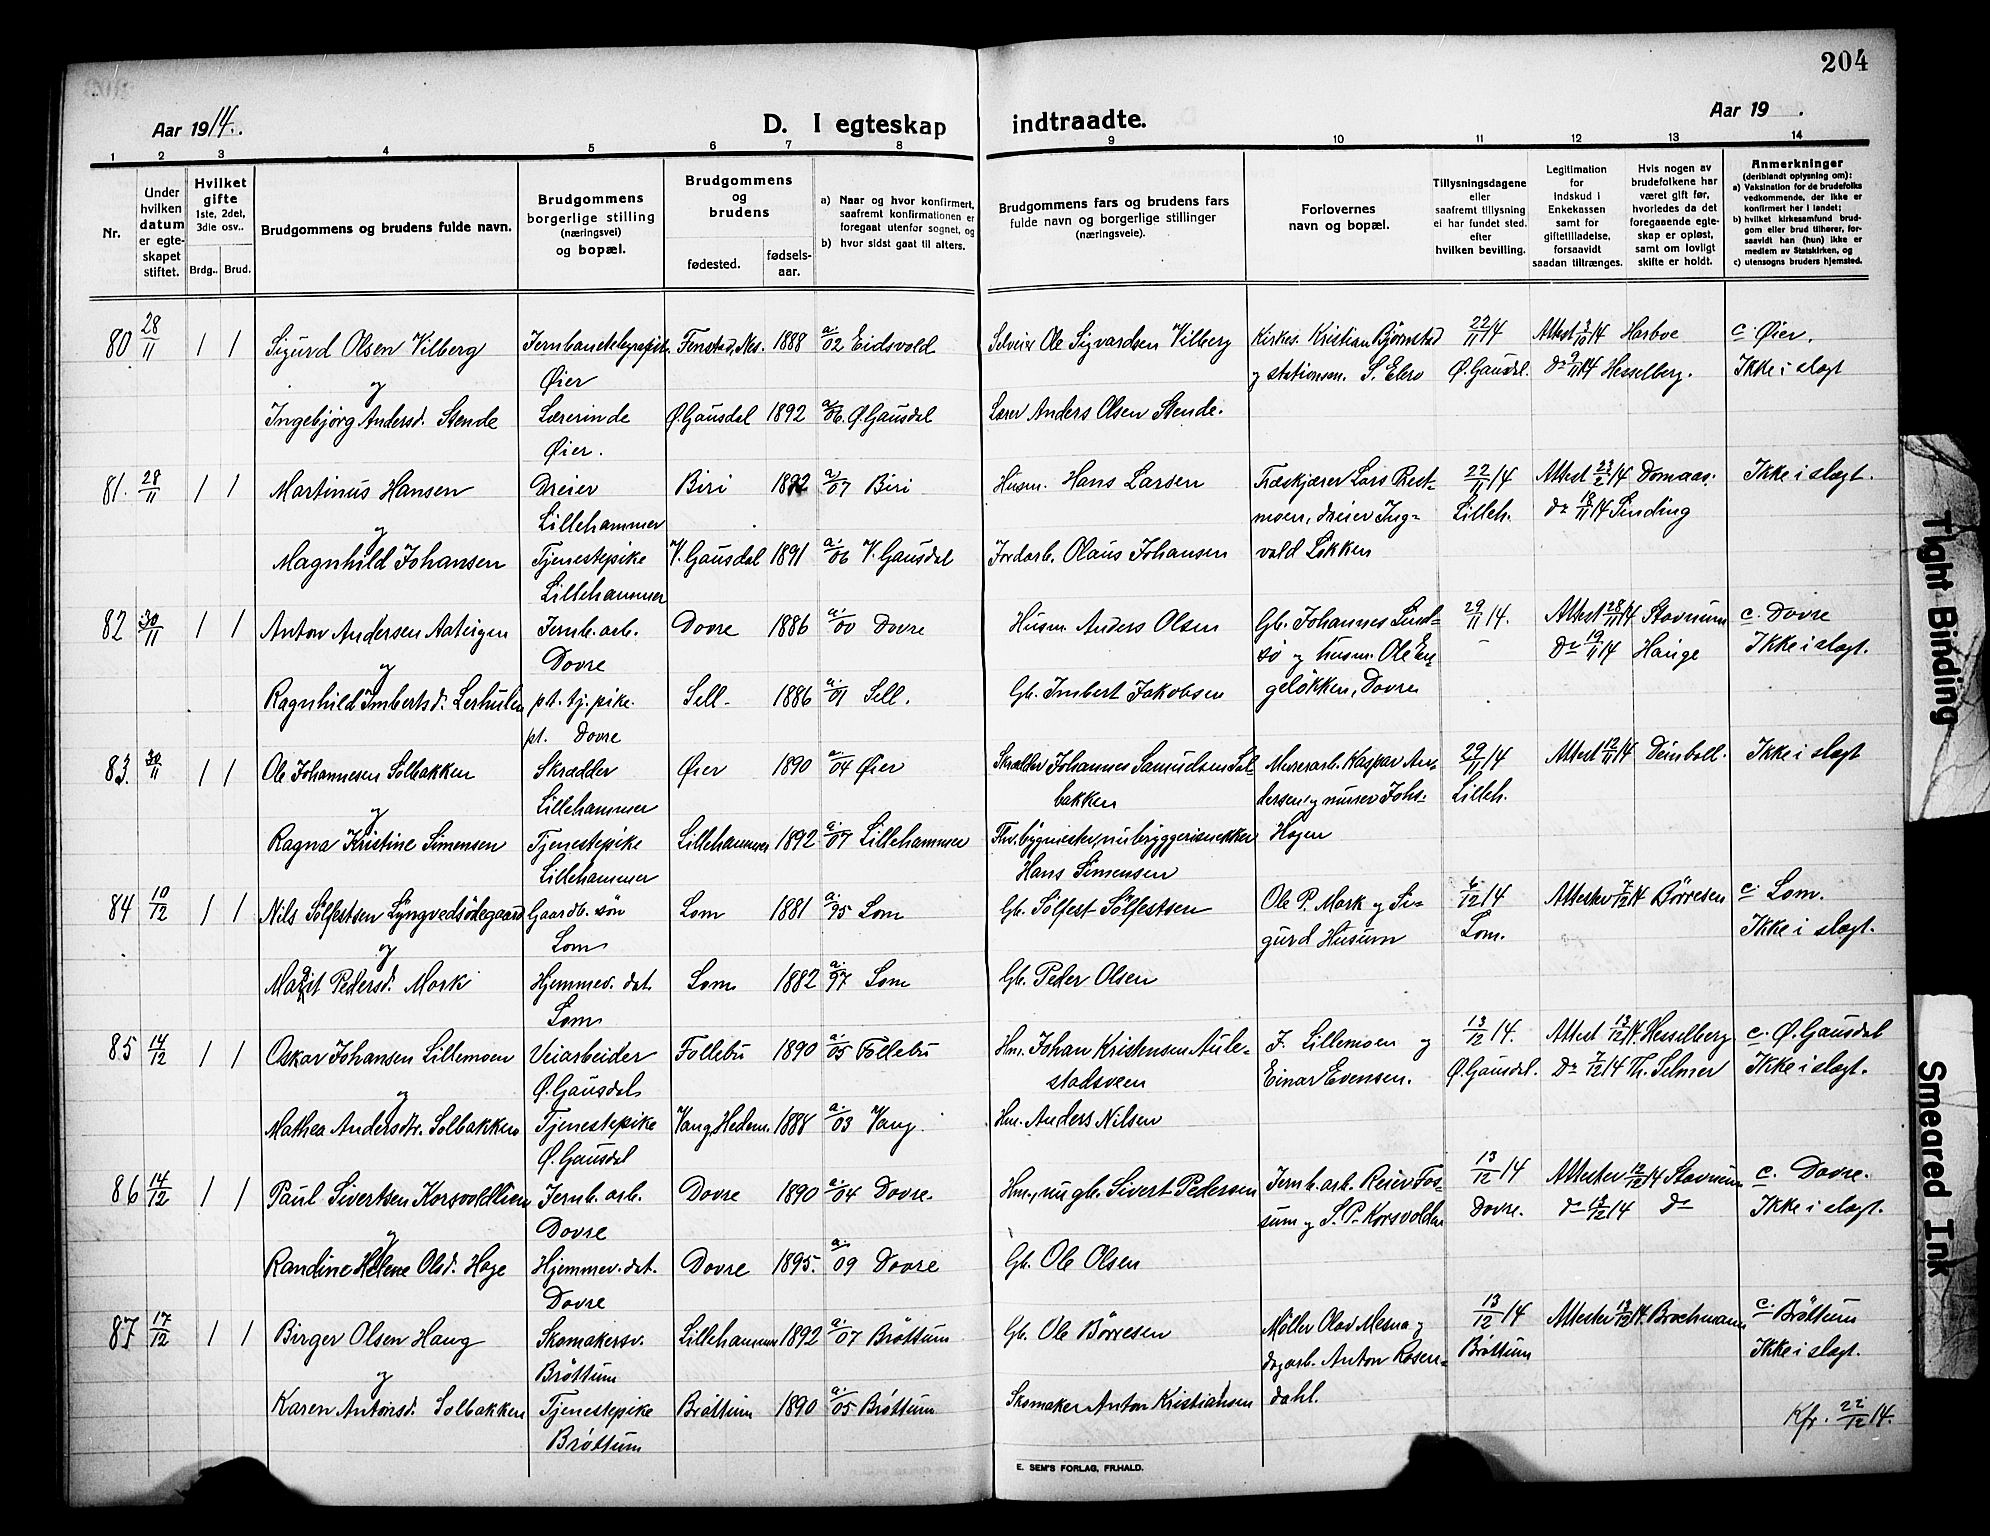 204
Aar 1914.
D. I egteskap indtraadte.
Aar 19 .
1 2 3 4 5 6 7 8 9 10 11 12 13 14
Nr.
Under hvilken datum er egteskapet stiftet.
Hvilket gifte 1ste, 2det, 3die osv..
Brdg.. Brud.
Brudgommens og brudens fulde navn.
Brudgommens borgerlige stilling (næringsvei) og bopæl.
Brudgommens og brudens
fødested. fødselsaar.
a) Naar og hvor konfirmert, saafremt konfirmationen er foregaat utenfor sognet, og
b) hvor sidst gaat til alters.
Brudgommens fars og brudens fars fulde navn og borgerlige stillinger (næringsveie).
Forlovernes navn og bopæl.
Tillysningsdagene eller saafremt tillysning ei har fundet sted. efter hvilken bevilling.
Legitimation for Indskud i Enkekassen samt for giftetilladelse, forsaavidt saadan tiltrænges.
Hvis nogen av brudefolkene har været gift før, hvorledes da det foregaaende egteskap er opløst, samt om lovligt skifte er holdt.
Anmerkninger (deriblandt oplysning om): a) Vaksination for de brudefolks vedkommende, der ikke er konfirmert her i landet; b) hvilket kirkesamfund brudgom eller brud tilhører, forsaavidt han (hun) ikke er medlem av Statskirken, og c) utensogns bruders hjemsted.
80 28/11 1 1 Sigurd Olsen Vilberg Jernbanetelegrafist Fenstad, Nes. 1888 a/02 Eidsvold Selveier Ole Sigvardsen Vilberg Kirkes. Kristian Bjørnstad 22/11 14 Attest 3/10 14 Harboe c. Øier.
og Øier og stationsm. S. Elero Ø. Gausd. Do 9/11 14 Hesselberg. Ikke i slegt
Ingebjørg Andersd. Stende Lærerinde Ø. Gausdal 1892 a/06. Ø. Gausdal Lærer Anders Olsen Stende.
Øier.
81. 28/11 1 1 Martinus Hansen Dreier Biri 1892 a/07 Biri Husm. Hans Larsen Træskjærer Lars Prest- 22/11 14 Attest 23/2 14 Domaas. Ikke i slegt.
og Lillehammer moen, dreier Ing- Lilleh. Do 18/11 14 Sinding
Magnhild Johansen Tjenestepike V. Gausdal 1891 a/06 V. Gausdal Jordarb. Olaus Johansen vald Løkken
Lillehammer
82 30/11 1 1 Anton Andersen Jernb. arb. Dovre 1886 a/00 Dovre Husm. Anders Olsen Gb. Johannes Lind- 29/11 14. Attest 28/11 14 Stavnum c. Dovre
og Dovre sø og husm. Ole En- - Do 19/11 14 Hauge Ikke i slegt.
Ragnhild Imbertsd. Lerhulen pt. tj. pike. Sell 1886 a/01 Sell. Gb. Imbert Jakobsen geløkken, Dovre
pt. Dovre
83. 30/11 1 1 Ole Johannesen Solbakken Skrædder Øier 1890 a/04 Øier Skrædder Johannes Samuelsen Sol- Murerarb. Kaspar An- 29/11 14 Attest 12/11 14 Deinboll. Ikke i slegt
og Lillehammer bakken dersen og murer Johs. Lilleh.
Ragna Kristine Simensen Tjenestepike Lillehammer 1892 a/07 Lillehammer Fhv. bygmester, nu bryggerisnekker Hagen
Lillehammer Hans Simensen
84 10/12 1 1 Nils Sølfestsen Lyngvedsødegaard Gaardb. søn Lom 1881 a/95 Lom Gb. Sølfest Sølfestsen Ole P. Mork og Si- 6/12 14 Attester 7/12 14 Børresen c. Lom.
og Lom gurd Husum Lom. Ikke i slegt.
Marit Pedersd. Mork Hjemmev. dat. Lom 1882 a/97 Lom Gb. Peder Olsen
Lom
85 14/12 1 1 Oskar Johansen Lillemoen Veiarbeider Follebu 1890 a/05 Follebu Hm. Johan Kristensen Aule- J. Lillemoen og 13/12 14. Attest 13/12 14. Hesselberg c. Ø. Gausdal
og Ø. Gausdal stadsveen Einar Evensen. Ø. Gausdal. Do 7/12 14 Th. Selmer Ikke i slegt.
Mathea Andersdtr. Solbakken Tjenestepike Vang, Hedem. 1888 a/03 Vang Hm. Anders Nilsen
Ø. Gausdal
86 14/12 1 1 Paul Sivertsen Korsvoldlien Jernb. arb. Dovre 1890 a/04 Dovre. Hm., nu gb. Sivert Pedersen Jernb. arb. Reier Fos- 13/12 14 Attester 12/12 14 Stavnum c. Dovre.
og Dovre sum og S. P. Korsvolden Dovre. Do 13/12 14 Do Ikke i slegt.
Randine Helene Olsd. Hage Hjemmev. dat. Dovre 1895. a/09 Dovre Gb. Ole Olsen
Dovre
87 17/12 1 1 Birger Olsen Haug Skomakersv. Lillehammer 1892 a/07 Brøttum Gb. Ole Børresen Møller Olav Mesna og 13/12 14 Attester 13/12 14. Brochmann c. Brøttum
og Brøttum dagarb. Anton Rosen- Brøttum Ikke i slegt.
Karen Antonsd. Solbakken Tjenestepike Brøttum 1890 a/05 Brøttum Skomaker Anton Kristiansen dahl.
Brøttum Kfr. 22/12 14.
E. SEM'S FORLAG, FR.HALD.
Tight Binding
Smeared Ink